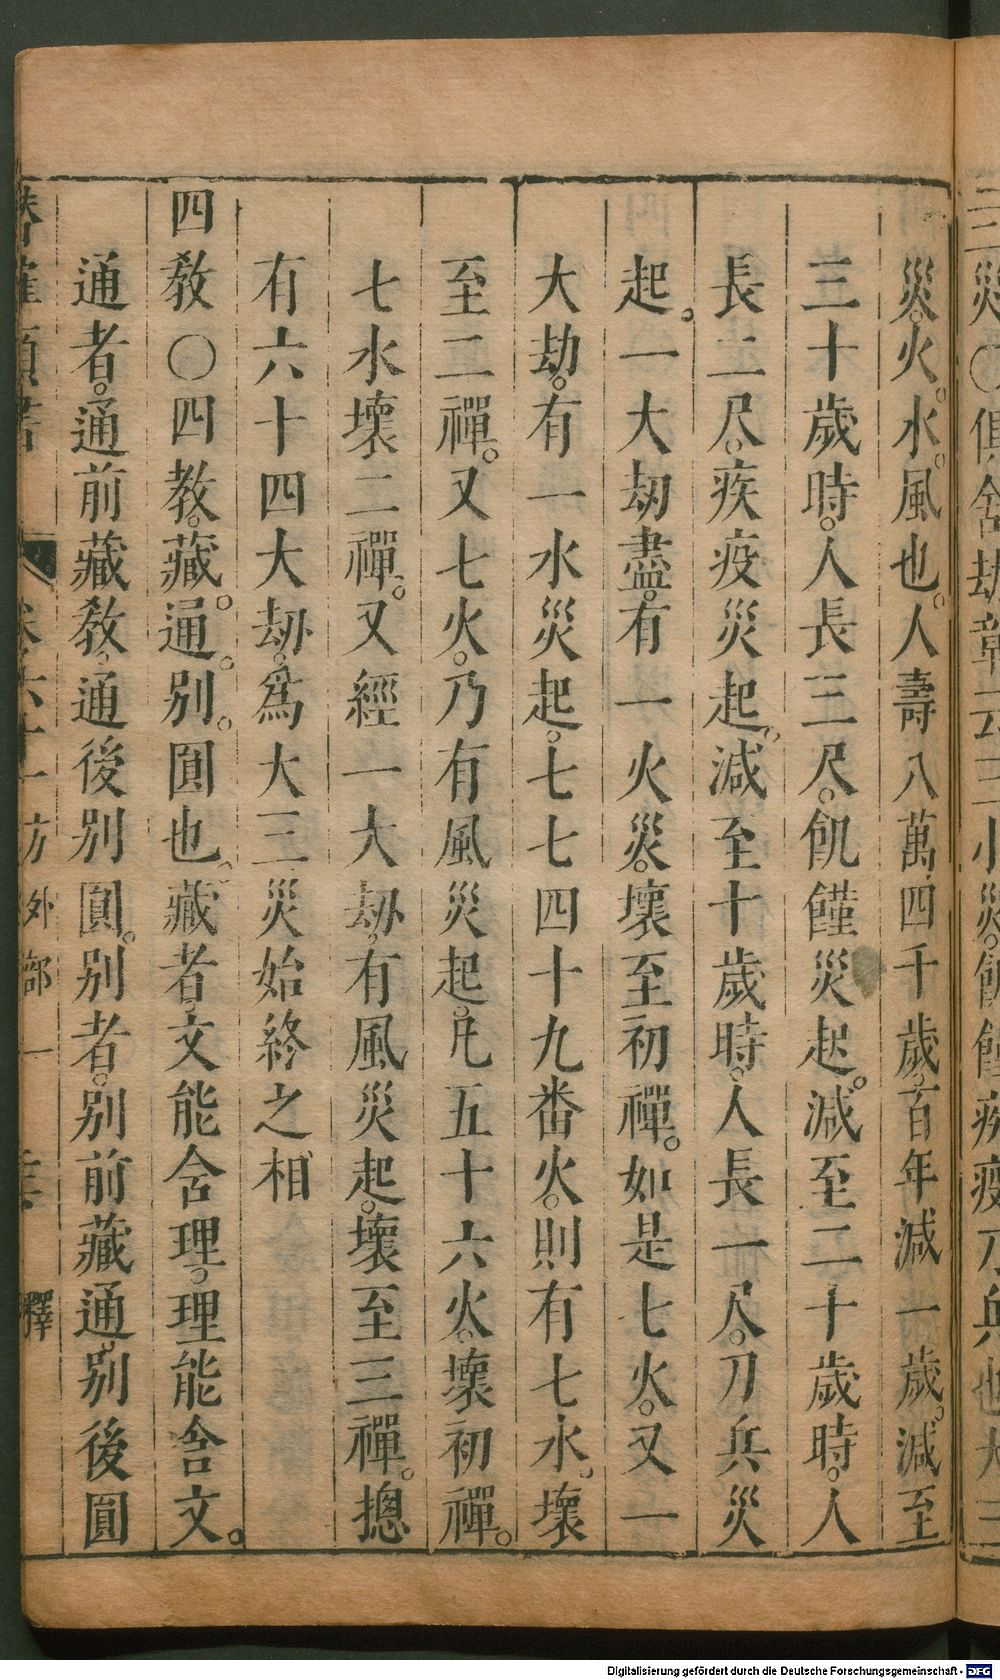 三災○俱舍劫章云三小災。饑饉疾疫刀兵也大三
災。火。水。風也。人壽八萬四千歲。百年減一歲。減至
三十歲時。人長三尺。飢饉災起。減至二十歲時。人
長二尺。疾疫災起。減至十歲時。人長一尺。刀兵災
起。一大劫盡。有一火災。壞至初禪。如是七火。又一
大劫。有一水災起。七七四十九番火。則有七水。壞
至二禪。又七火。乃有風災起。凡五十六火。壞初禪。
七水壞二禪。又經一大劫。有風災起。壞至三禪。摠
有六十四大劫。爲大三災始終之相
四敎○四教。藏。通。別。圓也。藏者。文能含理。理能含文。
通者。通前藏敎。通後別圓。別者。別前藏通。別後圓
卷六十一 方外部一 釋
Digitalisierung gefördert durch die Deutsche Forschungsgemeinschaft - DFG